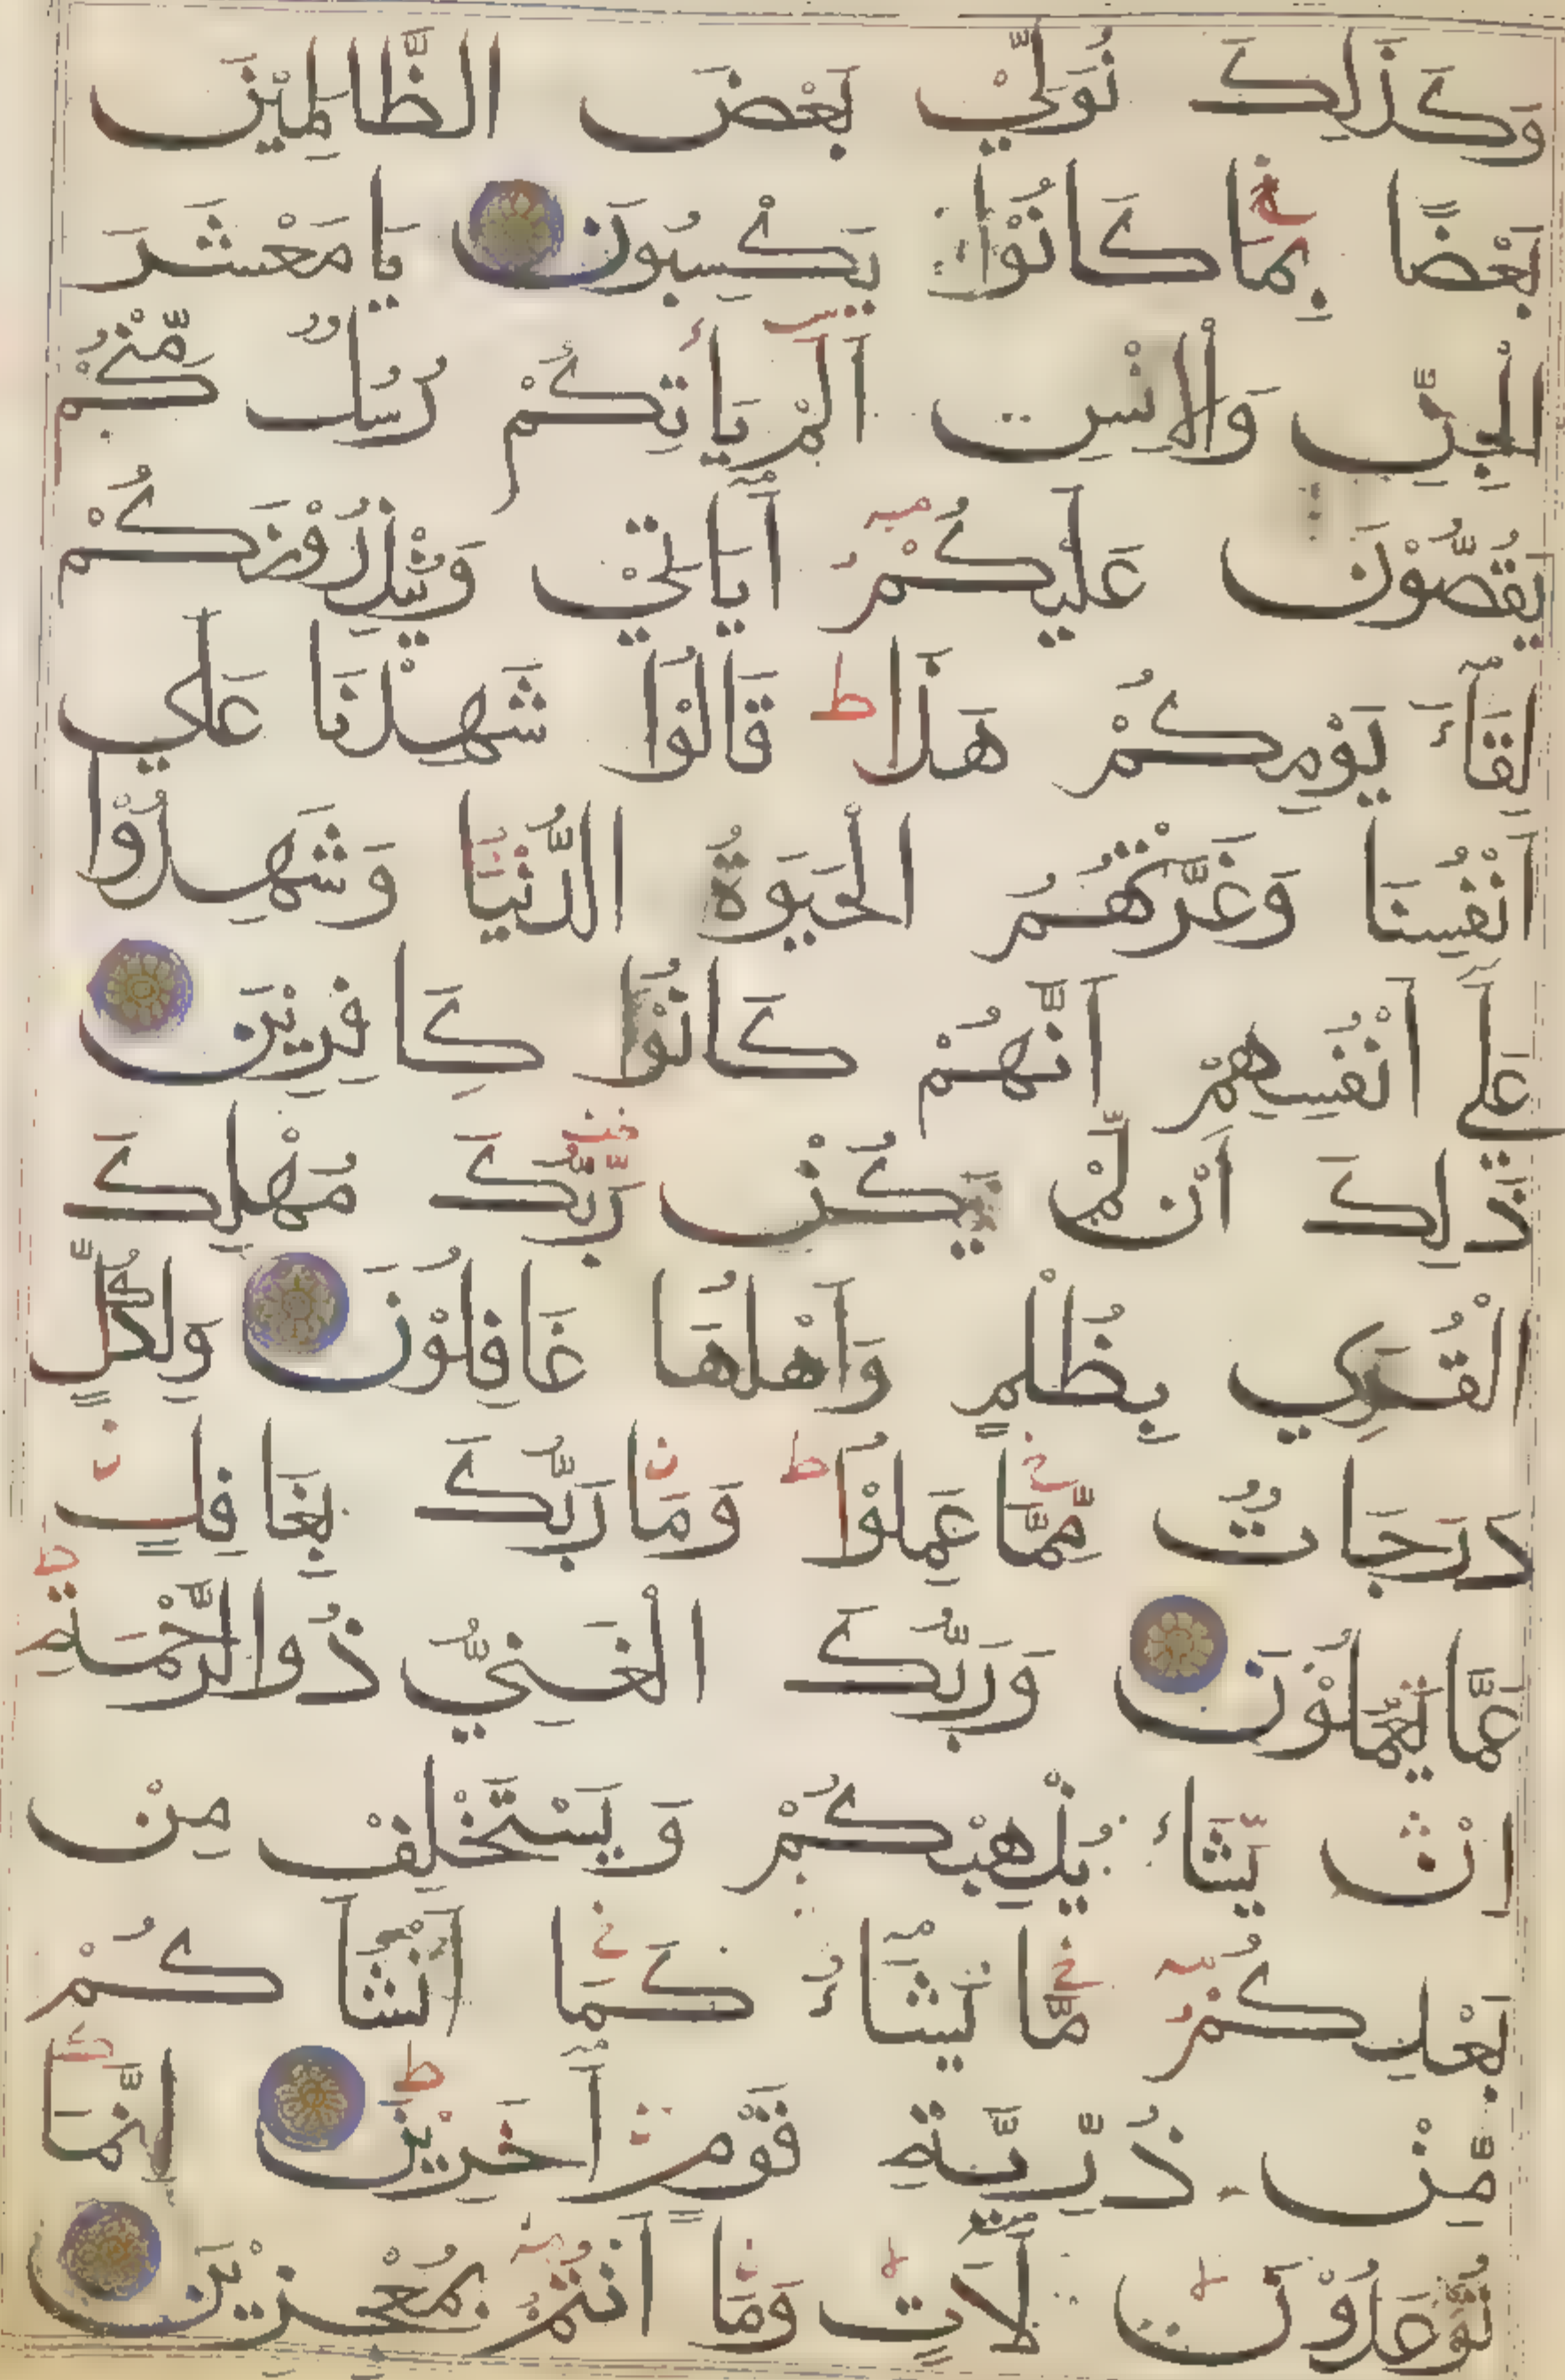 وَكَذَلِكَ نُوَلِّيْ بَعْضَ الظَّالِمِيْنَ
بَعْضًا بِمَا كَانُوْا يَكْسِبُوْنَ يَا مَعْشَرَ
الْجِنِّ وَالْاِنْسِ اَلَمْ يَأْتِكُمْ رُسُلٌ مِّنْكُمْ
يَقُصُّوْنَ عَلَيْكُمْ اٰيَاتِيْ وَيُنْذِرُوْنَكُمْ
لِقَآءَ يَوْمِكُمْ هَذَا ط قَالُوْا شَهِدْنَا عَلٰي
اَنْفُسِنَا وَغَرَّتْهُمُ الْحَيَوةُ الدُّنْيَا وَشَهِدُوْا
عَلٰٓي اَنْفُسِهِمْ اَنَّهُمْ كَانُوْا كَافِرِيْنَ
ذَلِكَ اَنْ لَّمْ يَكُنْ رَّبُّكَ مُهْلِكَ
الْقُرَي بِظُلْمٍ وَاَهْلُهَا غَافِلُوْنَ وَلِكُلٍّ
دَرَجَاتٌ مِّمَّا عَمِلُوْا ط وَمَا رَبُّكَ بِغَافِلٍ
عَمَّا يَعْمَلُوْنَ وَرَبُّكَ الْغَنِيُّ ذُوا الرَّحْمَةِ ط
اِنْ يَّشَأْ يُذْهِبْكُمْ وَيَسْتَخْلِفْ مِنْ
بَعْدِكُمْ مَّا يَشَآءُ كَمَا اَنْشَاَ كُمْ
مِّنْ ذُرِّيَّةِ قَوْمٍ اٰخَرِيْنَ ط اِنَّمَا
تُوْعَدُوْنَ لَاٰتٍ وَمَا اَنْتُمْ بِمُعْجِزِيْنَ